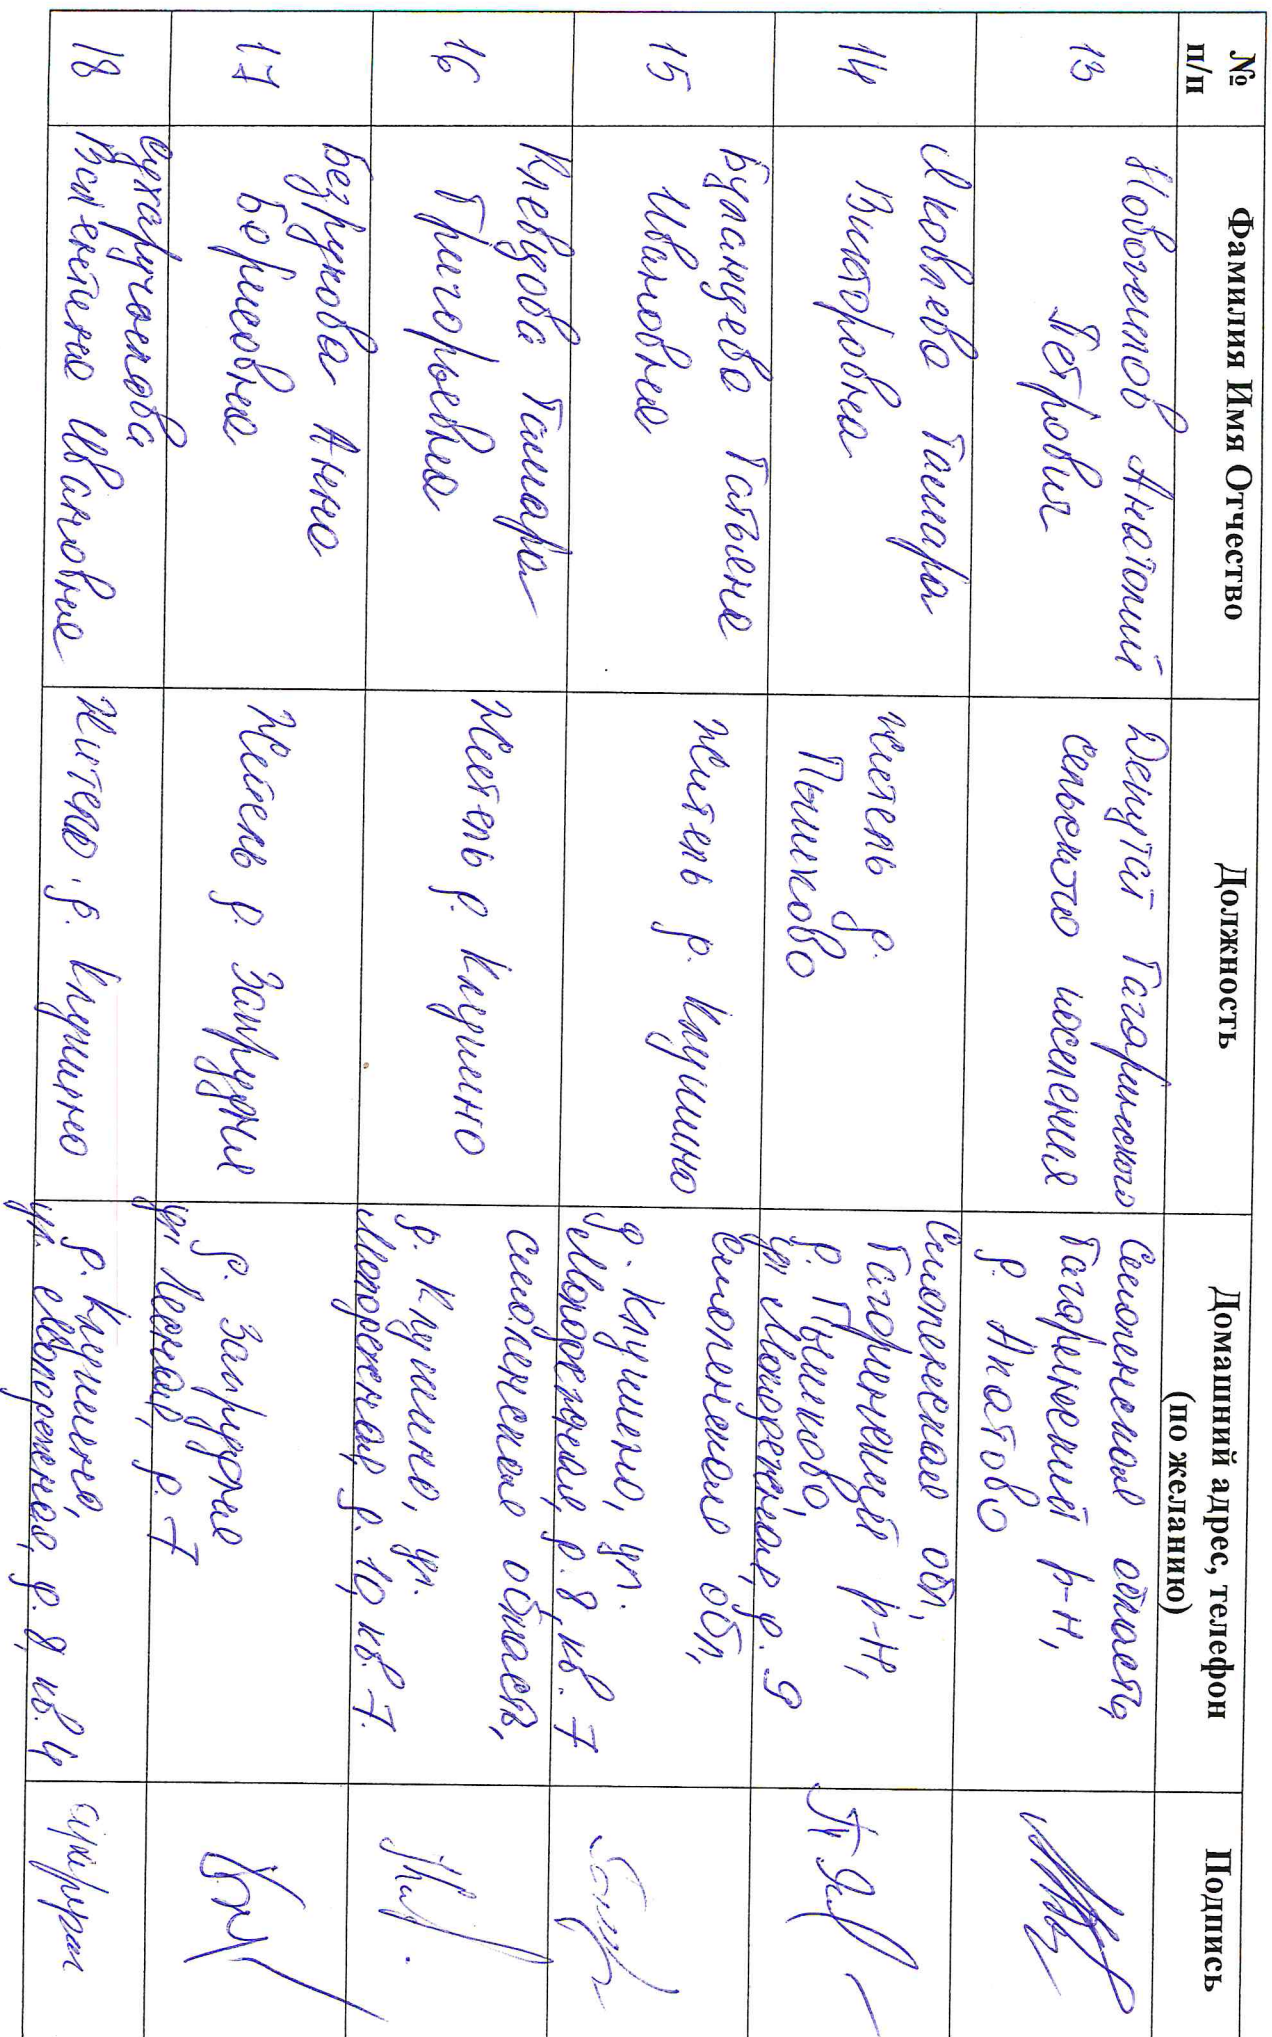 №
п/п
Фамилия Имя Отчество
Должность
Домашний адрес, телефон
(по желанию)
Подпись
13
Новожилов Анатолий
Петрович
Депутат Гагаринского
сельского поселения
Смоленская область,
Гагаринский р-н,
д. Ахатово
14
Яковлева Тамара
Викторовна
житель д.
Пышково
Смоленская обл,
Гагаринский р-н,
д. Пышково,
ул. Молодежная, д. 9
15
Буланцева Татьяна
Ивановна
житель д. Клушино
Смоленская обл,
д. Клушино, ул.
Молодежная, д. 8, кв. 7
16
Клевцова Тамара
Григорьевна
Житель д. Клушино
Смоленская область,
д. Клушино, ул.
Молодежная, д. 10, кв. 7.
17
Безрукова Анна
Борисовна
Житель д. Запрудня
д. Запрудня
ул. Лесная, д. 7
18
Сухаручонкова
Валентина Ивановна
житель д. Клушино
д. Клушино,
ул. Молодежная, д. 8, кв. 4